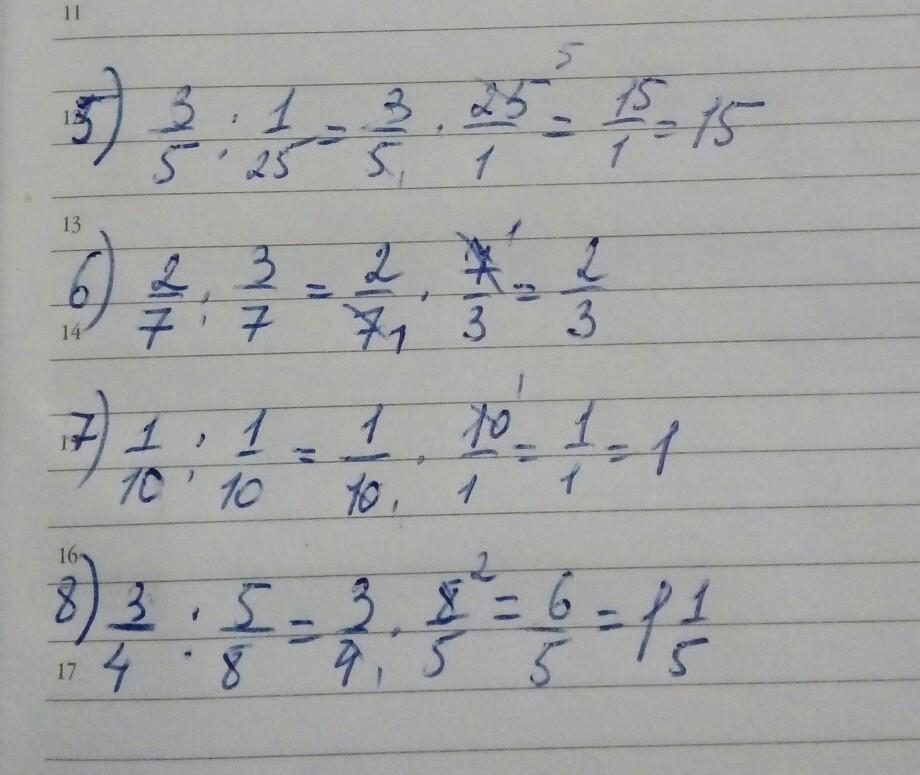 11
5) 3/5 : 1/25 = 3/5 1 · 25/1 5 = 15/1 = 15
13
6) 2/7 : 3/7 = 2/7 1 · 7/3 1 = 2/3
14
7) 1/10 : 1/10 = 1/10 1 · 10/1 1 = 1/1 = 1
16
8) 3/4 : 5/8 = 3/4 1 · 8/5 2 = 6/5 = 1 1/5
17